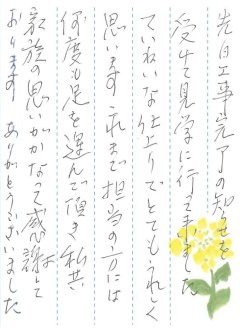 先日工事完了の知らせを
受けて見学に行って来ました
ていねいな仕上りでとてもうれしく
思います これまで担当の方には
何度も足を運んで頂き私共
家族の思いがかなって感謝して
おります ありがとうございました